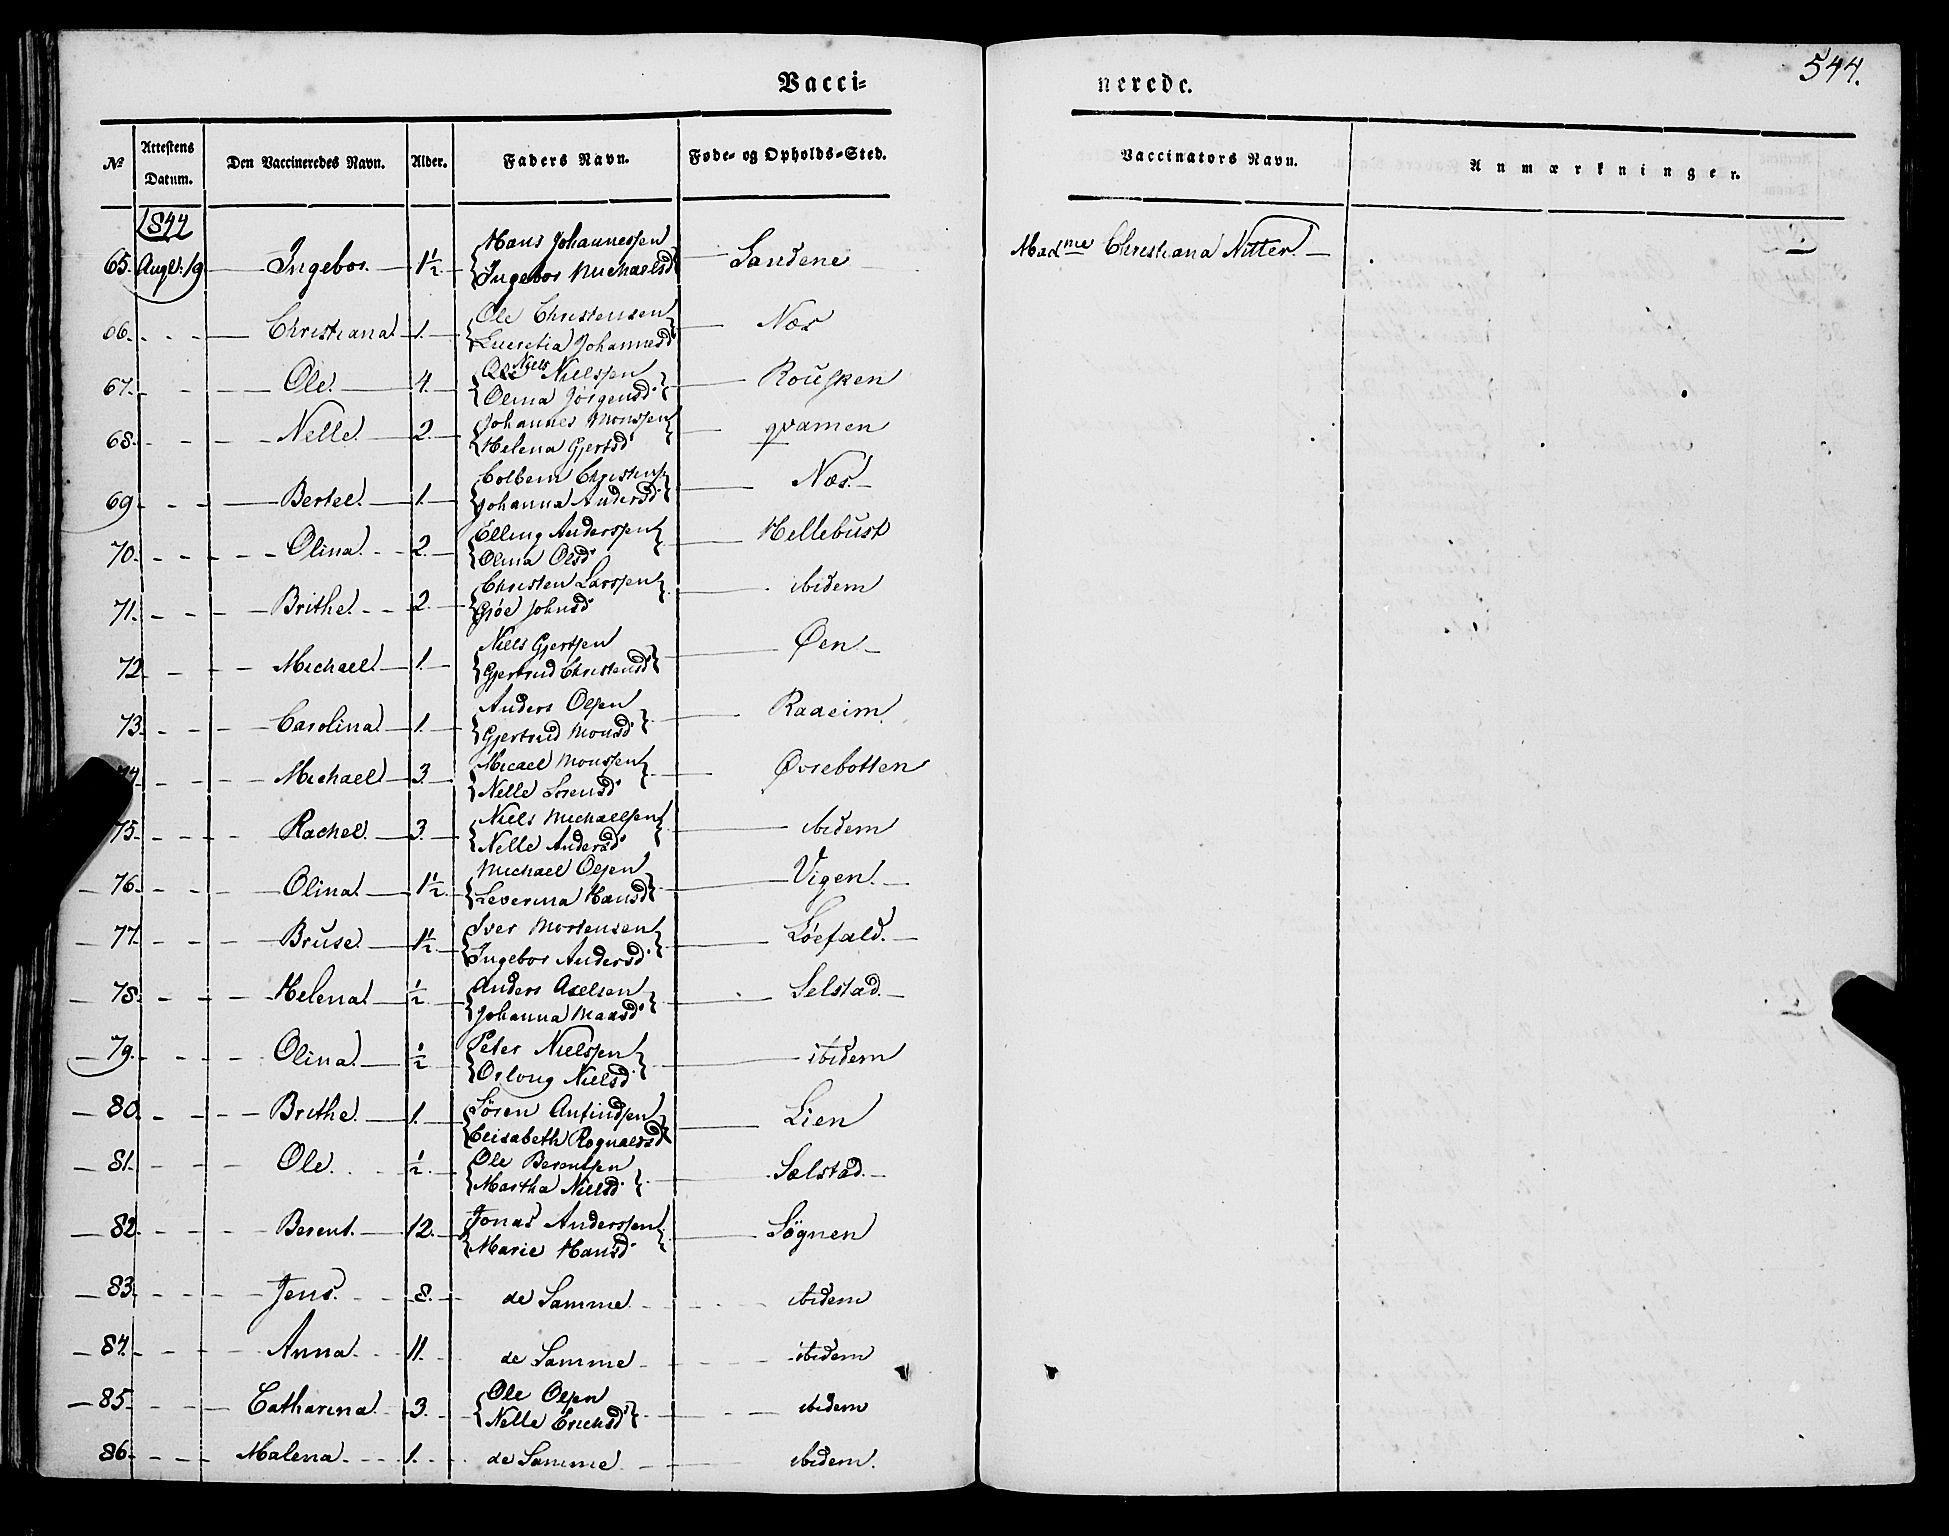 544.
Vacci= nerede.
No Attestens Datum. Den Vaccineredes Navn. Alder. Faders Navn. Føde- og Opholds-Sted. Vaccinators Navn. Anmærkninger.
1844
65. Augt. 19 Ingebor 1½ Hans Johannessen Sandene Madme Christiana Nitter
Ingebor Michaelsd
66. Christiana 1. Ole Christensen Næs
Lucretia Johannesd
67. Ole 4. Niels Nielssen Rousken
Olina Jørgensd
68. Nelle 2. Johannes Monssen qvamen
Helena Gjertsd
69. Bertel 1. Colbein Christens. Næs
Johanna Andersd
70. Olina 2. Elling Anderssen Hellebust
Olina Olsd
71. Brithe 2. Christen Larssen ibidem
Gjøe Johnsd
72. Michael 1. Niels Gjertsen Øen
Gjertrud Christensd
73. Carolina 1. Anders Olsen Raaeim
Gjertrud Monsd
74. Michael 3. Micael Monssen Øvrebotten
Nelle Sørensd
75. Rachel 3. Niels Michaelsen ibidem
Nelle Andersd
76. Olina 1½ Michael Olsen Vigen
Leverina Hansd
77. Bruse 1½ Iver Mortensen Løefald
Ingebor Andersd
78. Helena ½ Anders Axelsen Selstad
Johanna Maasd
79. Olina ½ Peter Nielssen ibidem
Oslong Nielsd
80. Brithe 1. Søren Anfindsen Lien
Elisabeth Rognaldsd
81. Ole ½ Ole Berentsen Sælstad
Martha Nielsd
82. Berent 12. Jonas Anderssen Søgnen
Marie Hansd
83. Jens 8. de Samme ibidem
84. Anna 11. de Samme ibidem
85. Catharina 3. Ole Olsen ibidem
Nelle Erichsd
86. Malena 1. de Samme ibidem.